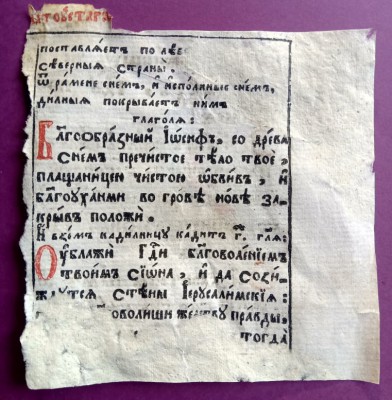 поставлѧетъ по лѣѣ
сѣверныѧ страны̀.
Ѿ ра́мене сне́мъ, и҆ и҆спо́лнивъ сне́мъ,
покрыва́етъ ни́мъ
глаго́лѧ:
Бл҃гоѡбра́зный І҆ѡ́сифъ, со дре́ва
сне́мъ пречи́стое тѣ́ло твоѐ,
плащани́цею чи́стою ѡ҆бви́въ, и҆
бл҃гоуха́ньми во гро́бѣ но́вѣ за-
кры́въ положѝ.
И҆ взе́мъ кади́лницу кади́тъ г҃. гл҃ѧ:
Оу҆блажѝ гд҇и бл҃говоле́нїемъ
твои́мъ сїѡ́на, и҆ да сози́-
ждутсѧ стѣ́ны і҆ерⷭ҇али́мскїѧ:
бл҃говоли́ши же́ртву пра́вды,
тогда̀